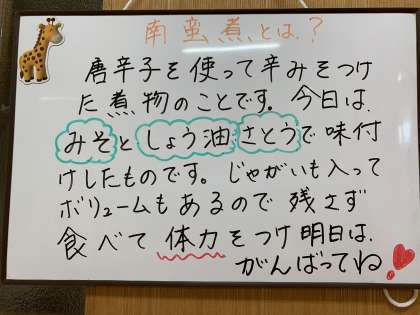 南蛮煮とは?
唐辛子を使って辛みをつけ
た煮物のことです。今日は、
みそとしょう油さとうで味付
けしたものです。じゃがいも入って
ボリュームもあるので残さず
食べて体力をつけ明日は、
がんばってね